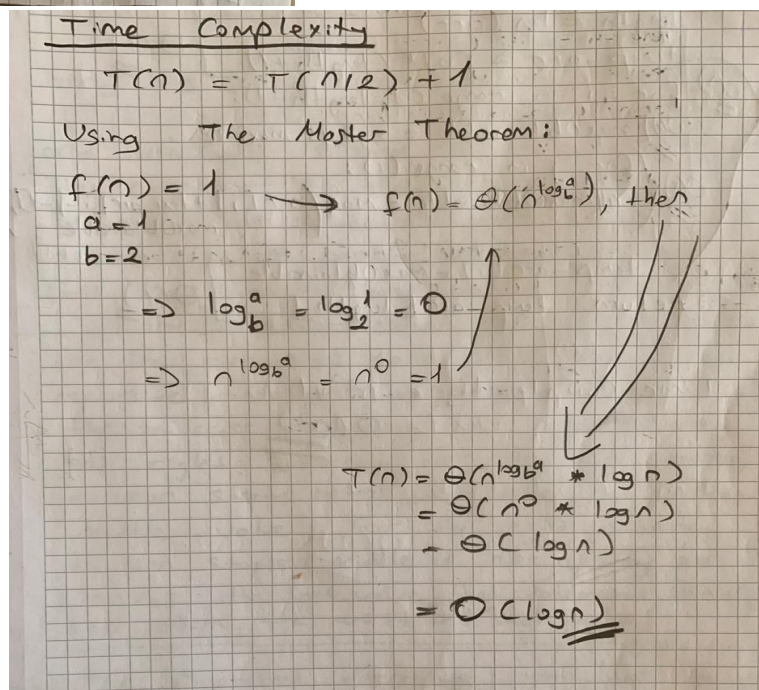 Time Complexity
T(n) = T(n/2) + 1
Using The Master Theorem:
f(n) = 1 → f(n) = Θ(n^log_b^a), then
a = 1
b = 2
=> log_b^a = log_2^1 = 0
=> n^log_b^a = n^0 = 1
T(n) = Θ(n^log_b^a * log n)
= Θ(n^0 * log n)
= Θ(log n)
= O(log n)